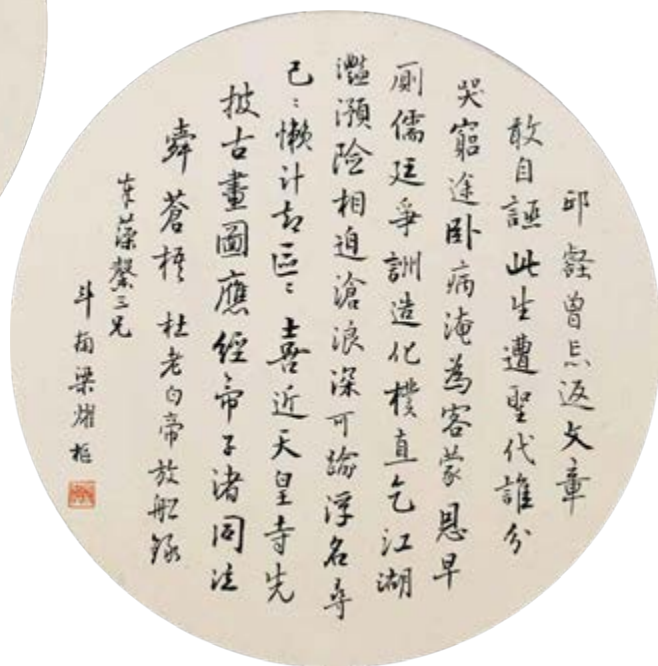 邱壑曾忘返文章
敢自誣此生遭聖代誰分
哭窮途卧病淹為客蒙恩早
厠儒廷爭詶造化樸直乞江湖
灩澦險相迫滄浪深可踰浮名尋
已〻懶計却區〻喜近天皇寺先
披古畫圖應經帝子渚同泣
舜蒼梧 杜老白帝放船錄
藻馨三兄
斗南梁燿樞